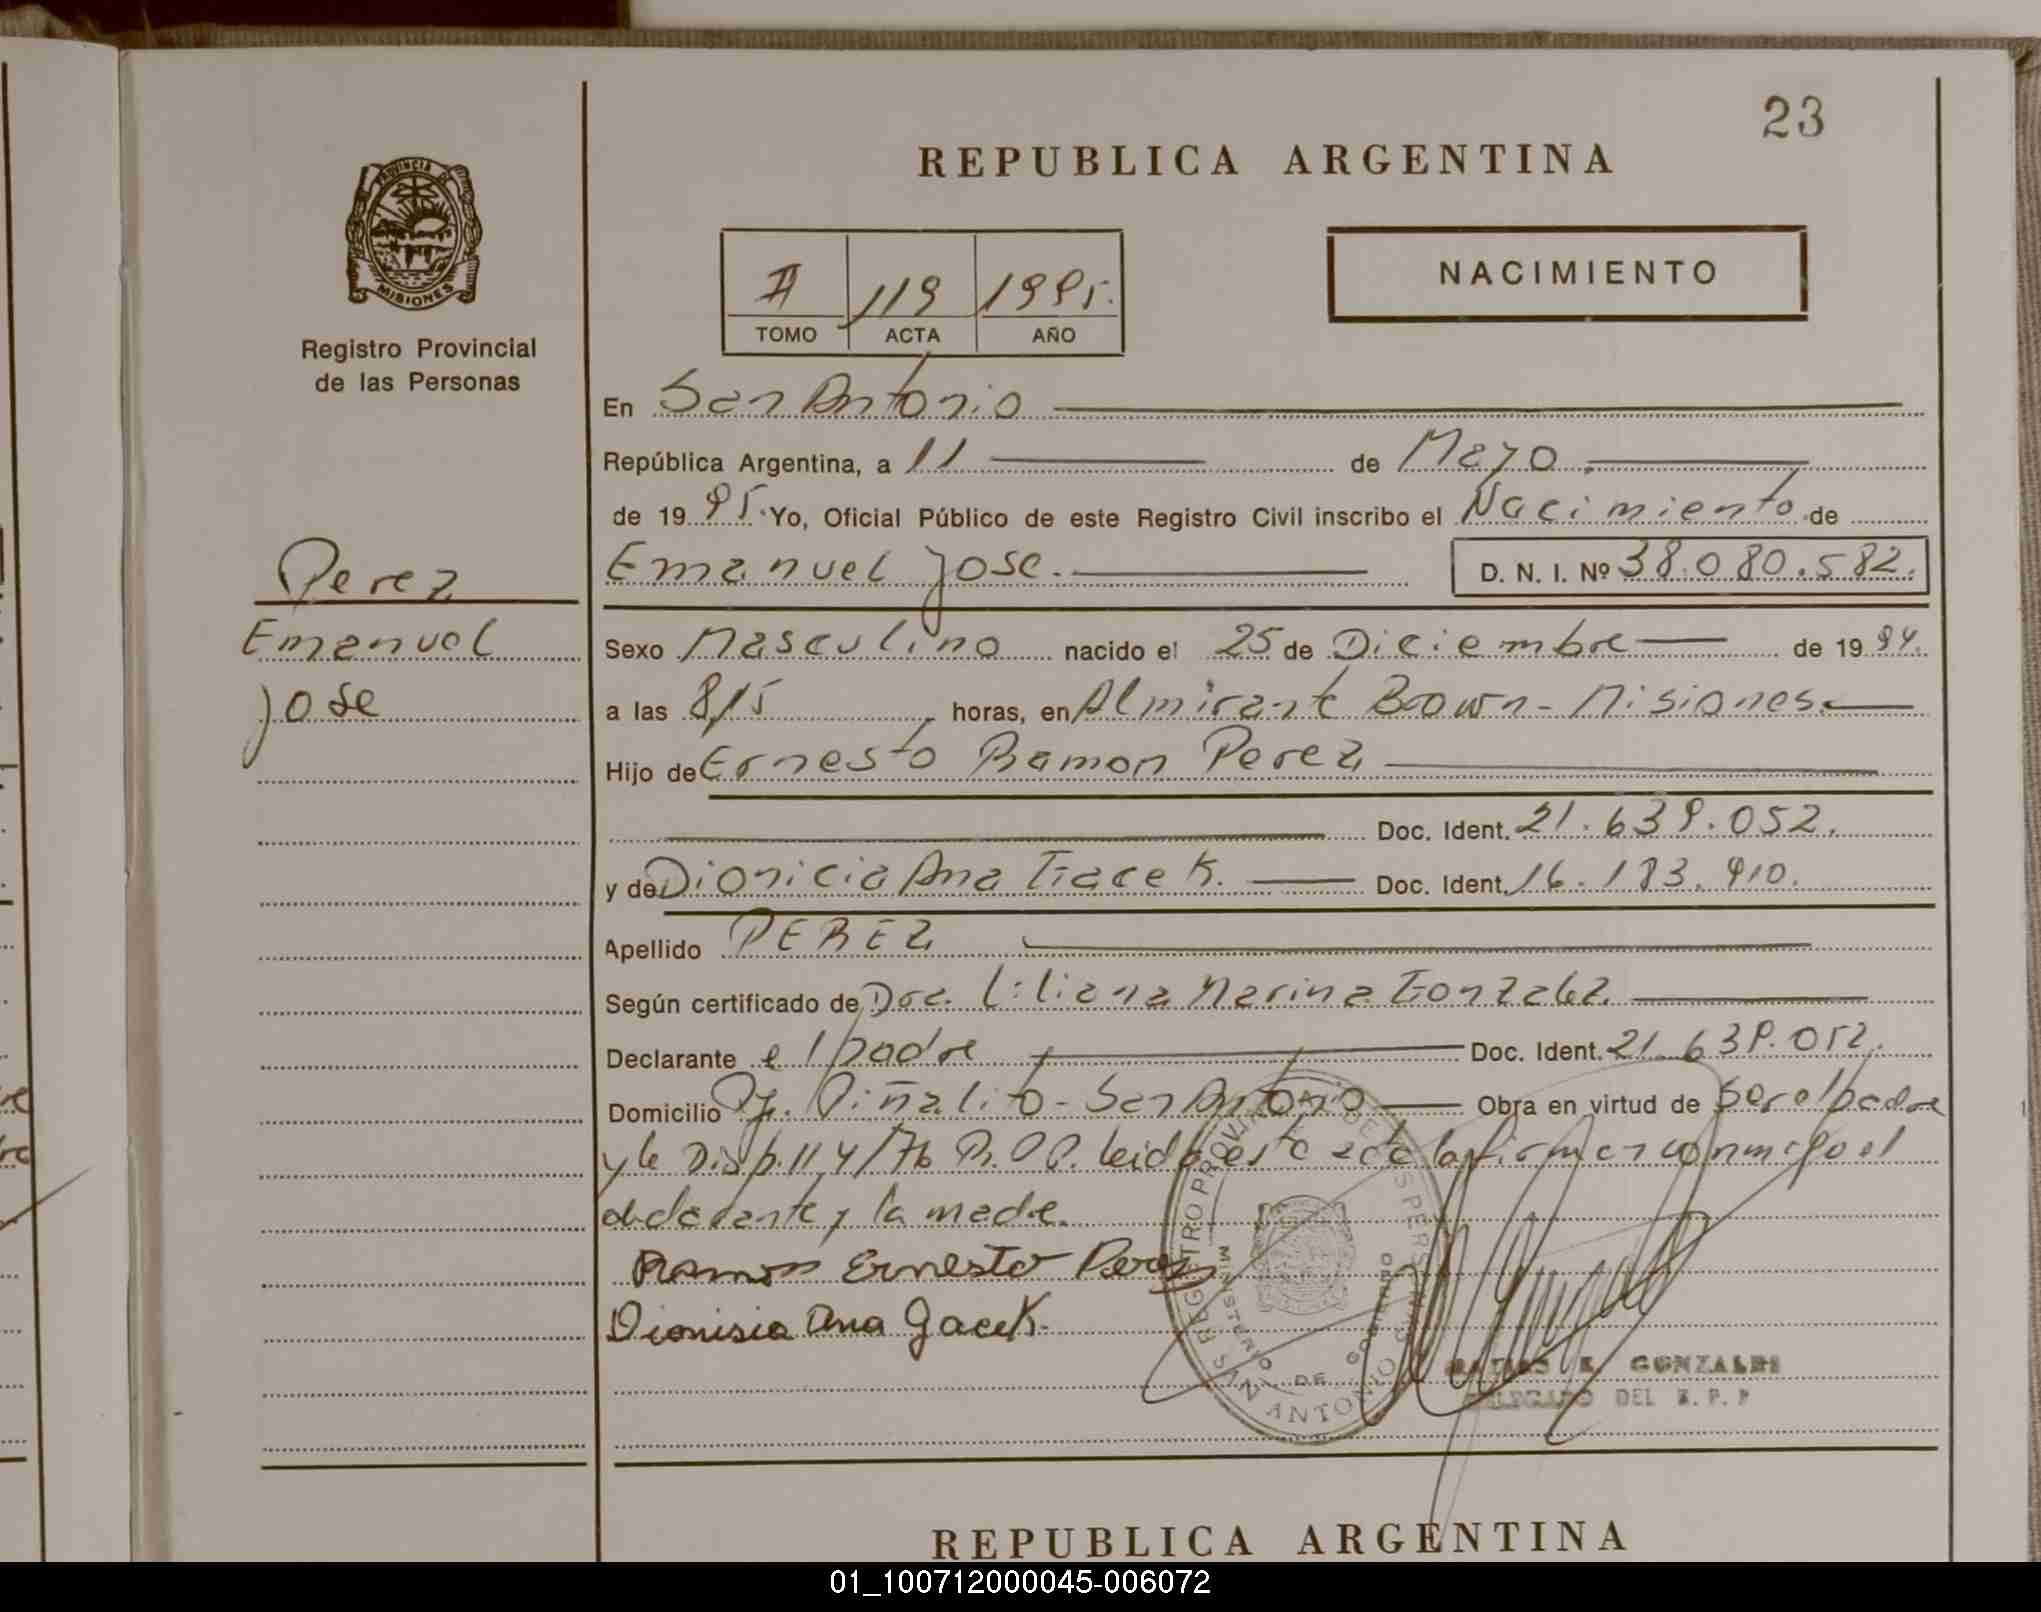 23
REPUBLICA ARGENTINA
PROVINCIA DE
MISIONES
Registro Provincial
de las Personas
II 119 1995.
TOMO ACTA AÑO
NACIMIENTO
En San Antonio
República Argentina, a 11 de Mayo.
de 1995. Yo, Oficial Público de este Registro Civil inscribo el Nacimiento de
Emanuel Jose. D. N. I. Nº 38.080.582.
Perez
Emanuel
Jose
Sexo Masculino nacido el 25 de Diciembre de 1994.
a las 8,15 horas, en Almirante Brown - Misiones.
Hijo de Ernesto Ramon Perez
Doc. Ident. 21.639.052.
y de Dionicia Ana Gacek. Doc. Ident. 16.183.910.
Apellido PEREZ
Según certificado de Dra. Liliana Marina Gonzalez.
Declarante el padre Doc. Ident. 21.639.052.
Domicilio Pje. Piñalito - San Antonio Obra en virtud de ser el padre
y la Disp. 114/76 R.P.P. leida esta acta la firman conmigo el
declarante y la madre.
Ramon Ernesto Perez
Dionisia Ana Gacek.
REGISTRO PROVINCIAL DE LAS PERSONAS
MINISTERIO DE GOBIERNO
SAN ANTONIO
E. GONZALES
DELEGADO DEL R. P. P
REPUBLICA ARGENTINA
01_100712000045-006072